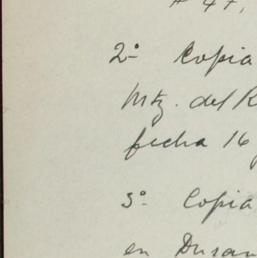 # 47,
2º Copia
Mtz. del R
fecha 16
3º Copia
en Duran